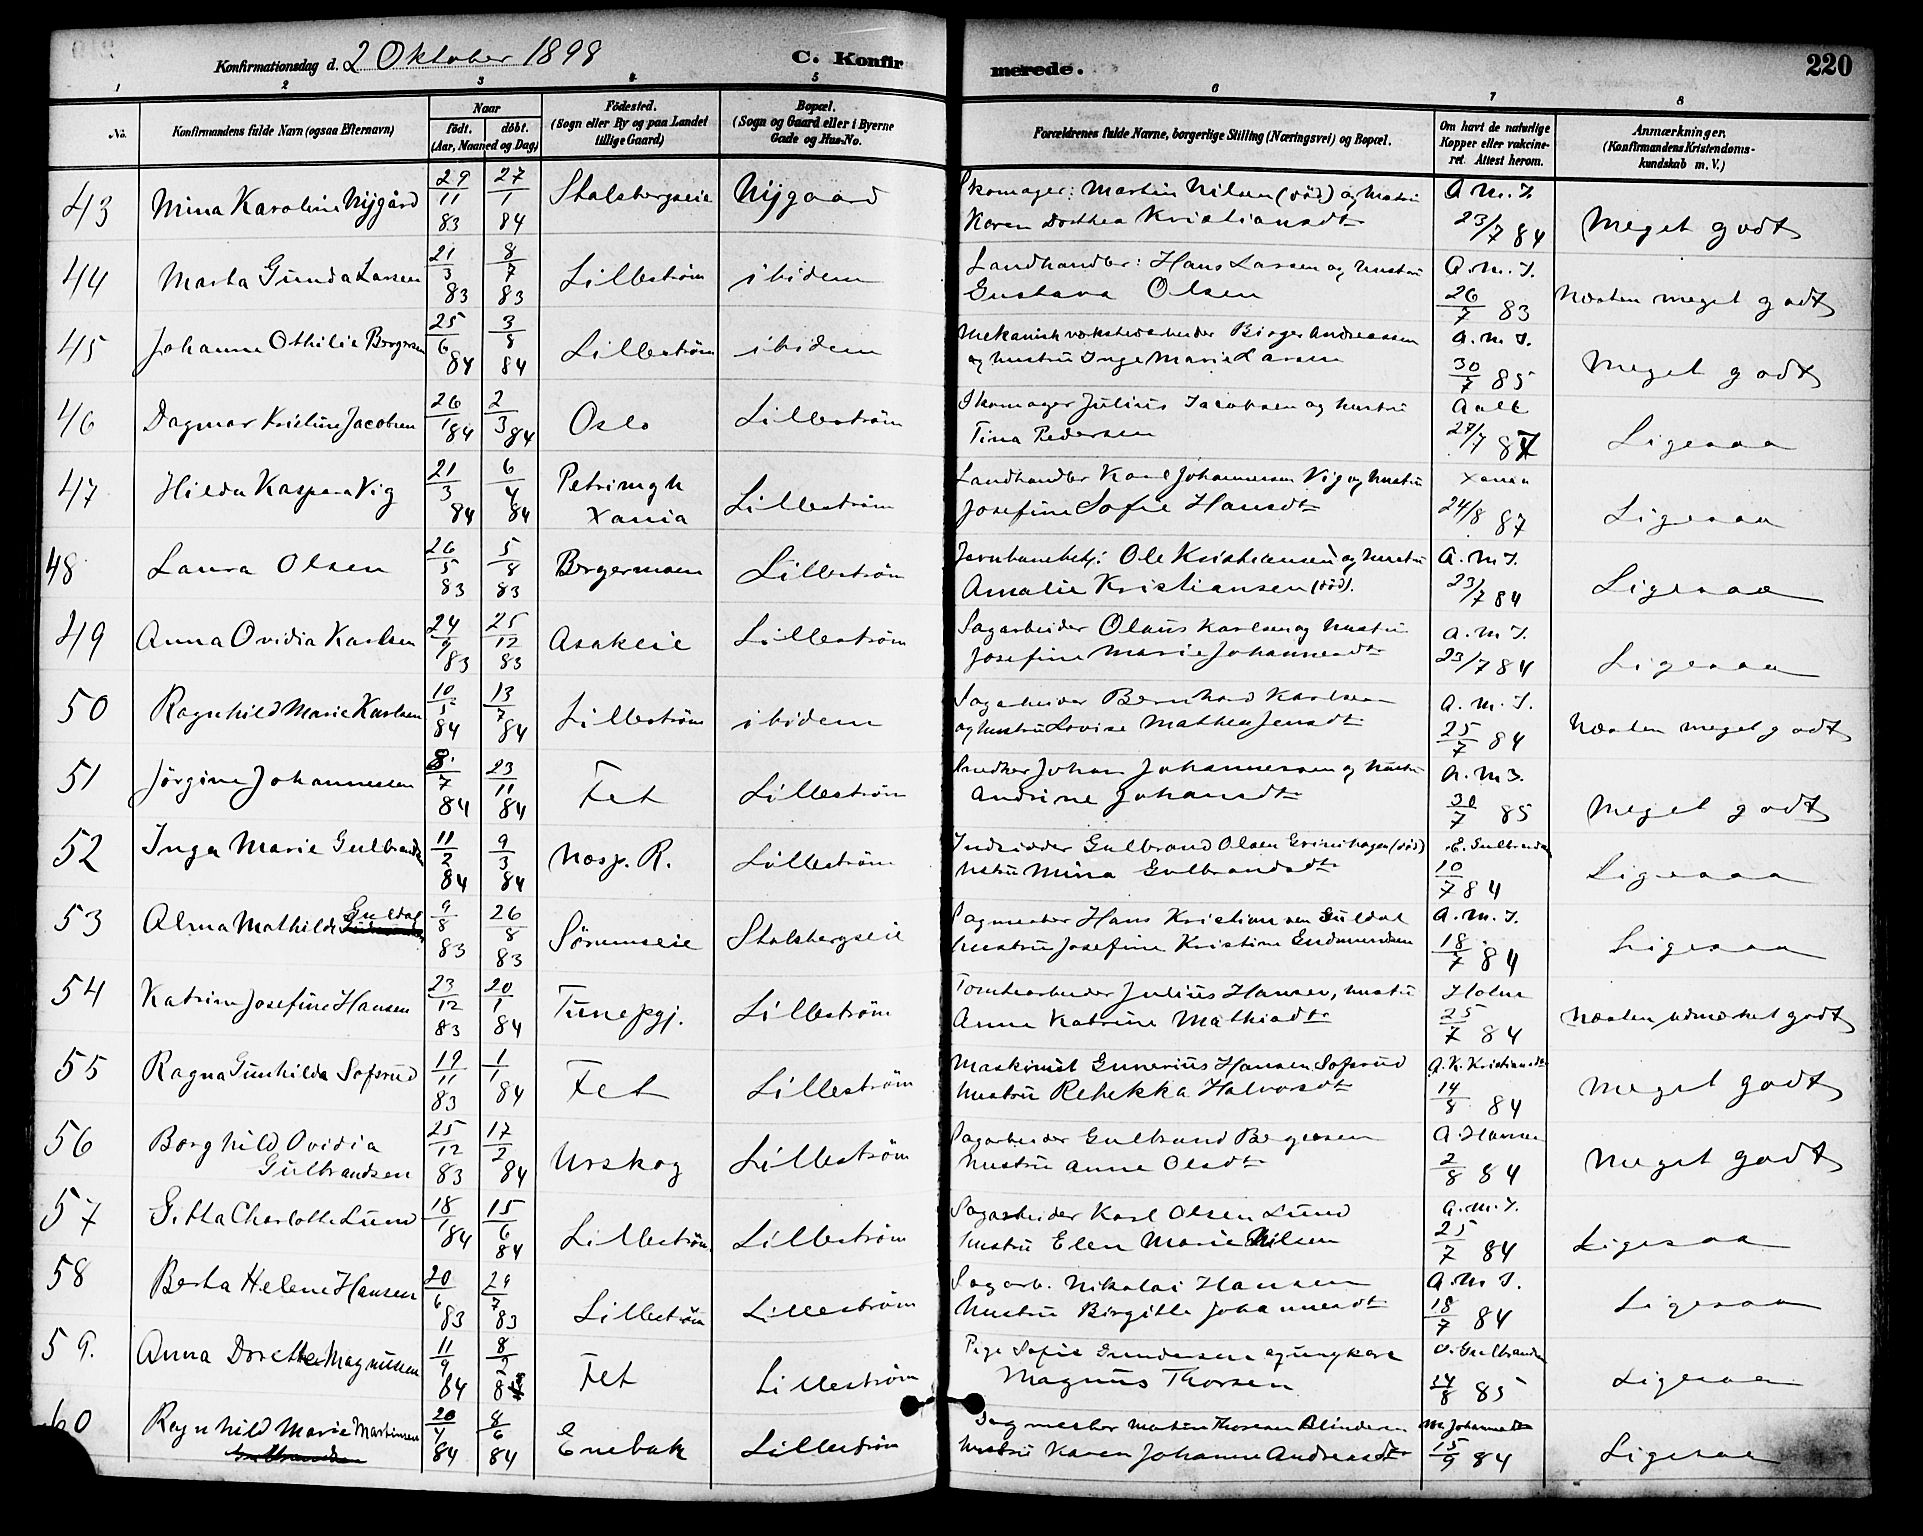 Konfirmationsdag d. 2 Oktober 1898 C. Konfir merede. 220
1 2 3 4 5 6 7 8
No. Konfirmandens fulde Navn (ogsaa Efternavn) Naar født. døbt. (Aar, Maaned og Dag) Fødested. (Sogn eller By og paa Landet tillige Gaard) Bopæl. (Sogn og Gaard eller i Byerne Gade og Hus-No. Forældrenes fulde Navne, borgerlige Stilling (Næringsvei) og Bopæl. Om havt de naturlige Kopper eller vakcineret. Attest herom. Anmærkninger. (Konfirmandens Kristendomskundskab m. V.)
43 Mina Karoline Nygård 29/11 83 27/1 84 Stalsbergseie Nygaard Skomager: Martin Nilsen (død) og hustru Karen Dorthea Kristiansdtr A. M. I. 23/7 84 Meget godt
44 Marta Gunda Larsen 21/3 83 8/7 83 Lillestrøm ibidem Landhandler: Hans Larsen og hustru Gustava Olsen A. M. I. 26/7 83 Næsten meget godt
45 Johanne Othilie Borgersen 25/6 84 3/8 84 Lillestrøm ibidem Mekanisk værkstedarbeider Birger Andreassen og hustru Inge Marie Larsen A. M. I. 30/7 85 Meget godt
46 Dagmar Kristine Jacobsen 26/1 84 2/3 84 Oslo Lillestrøm Skomager Julius Jacobsen og hustru Tina Pedersen 27/7 87 Ligesaa
47 Hilda Kaspara Vig 21/3 84 6/4 84 Petrimgh Xania Lillestrøm Landhandler Karl Johannesen Vig og hustru Josefine Sofie Hansdtr Xania 24/8 87 Ligesaa
48 Laura Olsen 26/5 83 5/8 83 Bergermoen Lillestrøm Jernbanebetj: Ole Kristiansen og hustru Amalie Kristiansen (død). A. M. I. 23/7 84 Ligesaa
49 Anna Ovidia Karlsen 24/9 83 25/12 83 Asakeie Lillestrøm Sagarbeider Olaus Karlsen og hustru Josefine Marie Johannesdtr A. M. I. 23/7 84 Ligesaa
50 Ragnhild Marie Karlsen 10/5 84 13/7 84 Lillestrøm ibidem Sagarbeider Bernhard Karlsen og hustru Lovise Mathea Jensdtr A. M. I. 25/7 84 Næsten meget godt
51 Jørgine Johannessen 8/7 84 23/11 84 Fet Lillestrøm Snedker Johan Johannessen og hustru Andrine Johansdtr A. M. I. 30/7 85 Meget godt
52 Inga Marie Gulbrandsen 11/2 84 9/3 84 Næsp. R. Lillestrøm Indsidder Gulbrand Olsen Grinihagen (død) hustru Mina Gulbrandsdtr E. Gulbrandsen 10/7 84 Ligesaa
53 Alma Mathilde Guldal 9/8 83 26/8 83 Sørumseie Stalsbergseie Sagmester Hans Kristiansen Guldal hustru Josefine Kristine Gudmundsen A. M. I. 18/7 84 Ligesaa
54 Katrine Josefine Hansen 23/12 83 20/1 84 Tune pgj. Lillestrøm Tomtearbeider Julius Hansen, hustru Anne Katrine Mathiasdtr Holm 25/7 84 Næsten udmærket godt
55 Ragna Gunhilda Sofsrud 19/11 83 1/1 84 Fet Lillestrøm Maskinist Gunerius Hansen Sofsrud hustru Rebekka Halvorsdtr A. K. Kristiansdtr 14/8 84 Meget godt
56 Borghild Ovidia Gulbrandsen 25/12 83 17/2 84 Urskog Lillestrøm Sagarbeider Gulbrand Bergersen hustru Anne Olsdtr A. Hansen 2/8 84 Meget godt
57 Gitta Charlotte Lund 18/1 84 15/6 84 Lillestrøm Lillestrøm Sagarbeider Karl Olsen Lund hustru Elen Marie Nilsen A. M. I. 25/7 84 Ligesaa
58 Berta Helene Hansen 20/6 83 29/7 83 Lillestrøm Lillestrøm Sagarb. Nikolai Hansen hustru Birgitte Johannesdtr A. M. I. 18/7 84 Ligesaa
59. Anna Dorethe Magnussen 11/9 84 Fet Lillestrøm Pige Sofie Gundersen og ungkarl Magnus Thorsen O. Gulbrandsen 14/8 85 Ligesaa
60 Ragnhild Marie Martinsen 20/4 84 8/6 84 Enebak Lillestrøm Sagmester Martin Thoresen Blinderen hustru Karen Johanne Andreasdtr M. Johannesdtr 15/9 84 Ligesaa